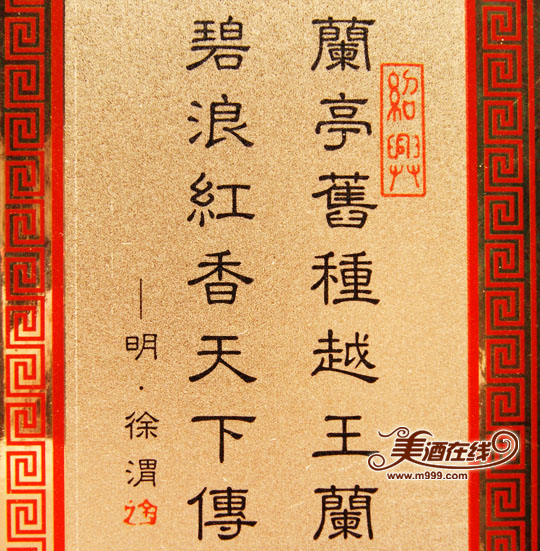 蘭亭舊種越王蘭
碧浪紅香天下傳
——明·徐渭
紹興
美酒在线
www.m999.com